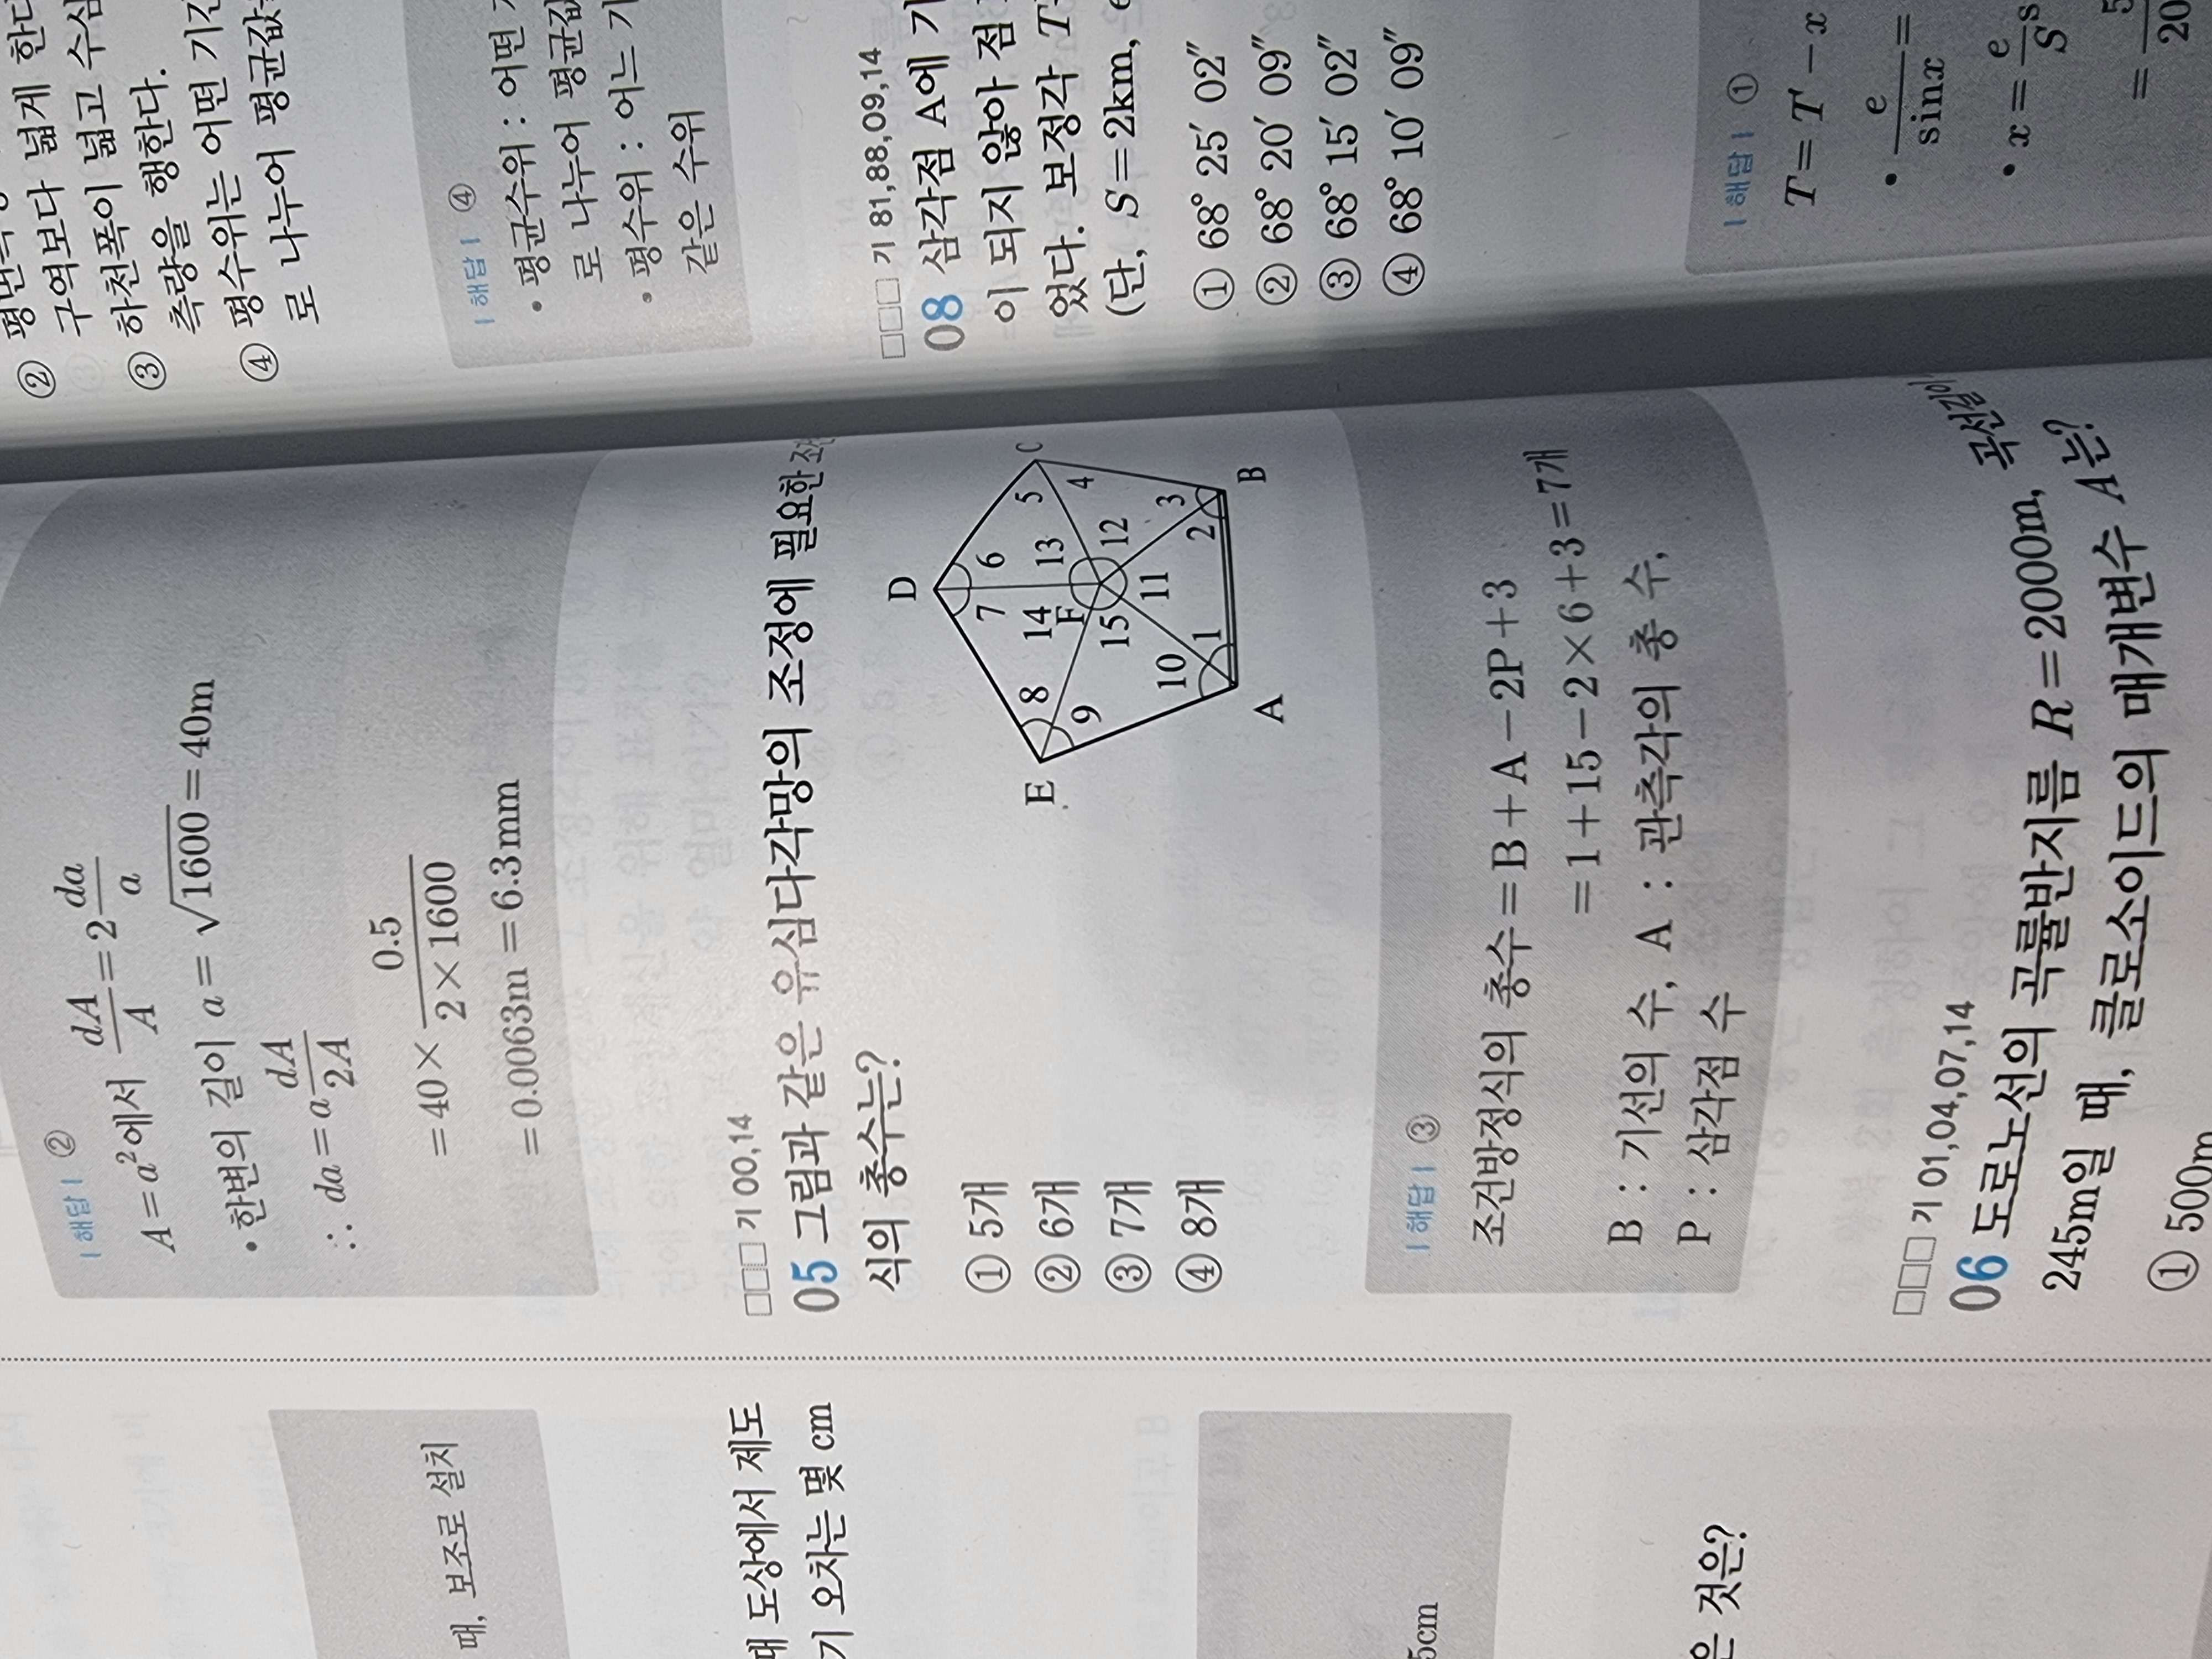 | 해답 | ②
A=a²에서 dA/A=2 da/a
• 한변의 길이 a=√1600=40m
∴ da=a dA/2A
=40× 0.5/2×1600
=0.0063m=6.3mm
□□□ 기 00,14
05 그림과 같은 유심다각망의 조정에 필요한
식의 총수는?
① 5개
② 6개
③ 7개
④ 8개
D
C
B
A
E
F
1
2
3
4
5
6
7
8
9
10
11
12
13
14
15
| 해답 | ③
조건방정식의 총수=B+A-2P+3
=1+15-2×6+3=7개
B : 기선의 수, A : 관측각의 총 수,
P : 삼각점 수
□□□ 기 01,04,07,14
06 도로노선의 곡률반지름 R=2000m, 곡선길이
245m일 때, 클로소이드의 매개변수 A는?
① 500m
때, 보조로 설치
때 도상에서 제도
기 오차는 몇 cm
5cm
은 것은?
②
구역보다 넓게 한다
③ 하천폭이 넓고 수심
측량을 행한다.
④ 평수위는 어떤 기간
로 나누어 평균값을
| 해답 | ④
• 평균수위 : 어떤
로 나누어 평균값
• 평수위 : 어느 기
같은 수위
□□□ 기 81,88,09,14
08 삼각점 A에 기
이 되지 않아 점
었다. 보정각 T
(단, S=2km, e
① 68° 25′ 02″
② 68° 20′ 09″
③ 68° 15′ 02″
④ 68° 10′ 09″
| 해답 | ①
T=T′-x
• e/sinx=
• x= e/S s
= 20